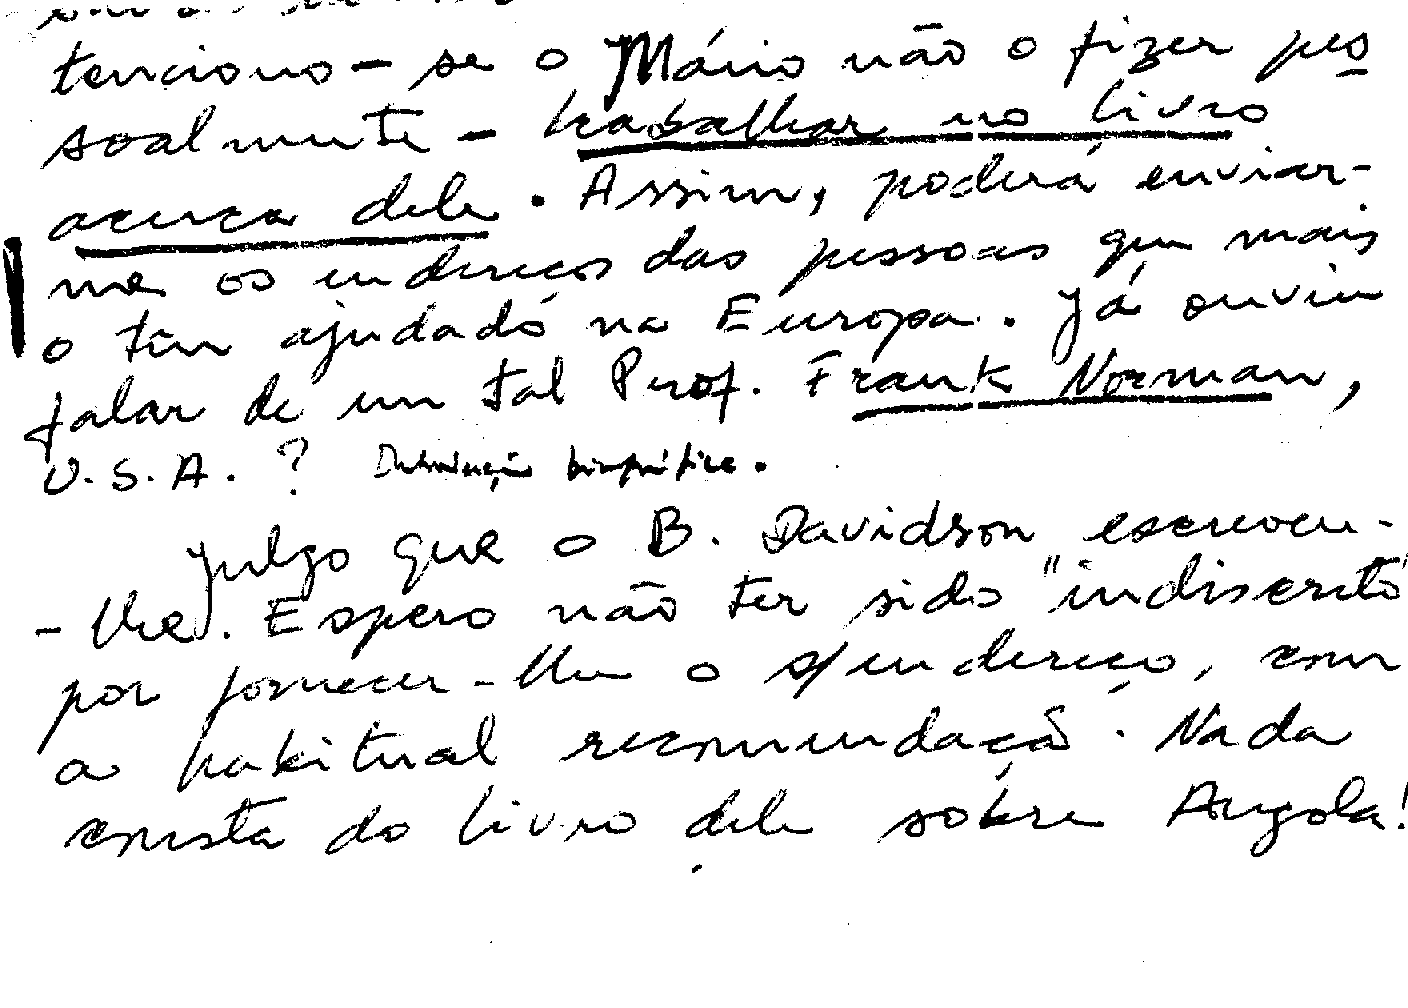 tenciono - se o Mário não o fizer pes
soalmente - trabalhar no livro
acerca dele. Assim, poderá enviar-
me os endereços das pessoas que mais
o têm ajudado na Europa. Já ouviu
falar de um tal Prof. Frank Norman,
U.S.A.? Introdução biográfica.
Julgo que o B. Davidson escreveu-
-lhe. Espero não ter sido "indiscreto"
por fornecer-lhe o s/endereço, com
a habitual recomendação. Nada
consta do livro dele sobre Angola!